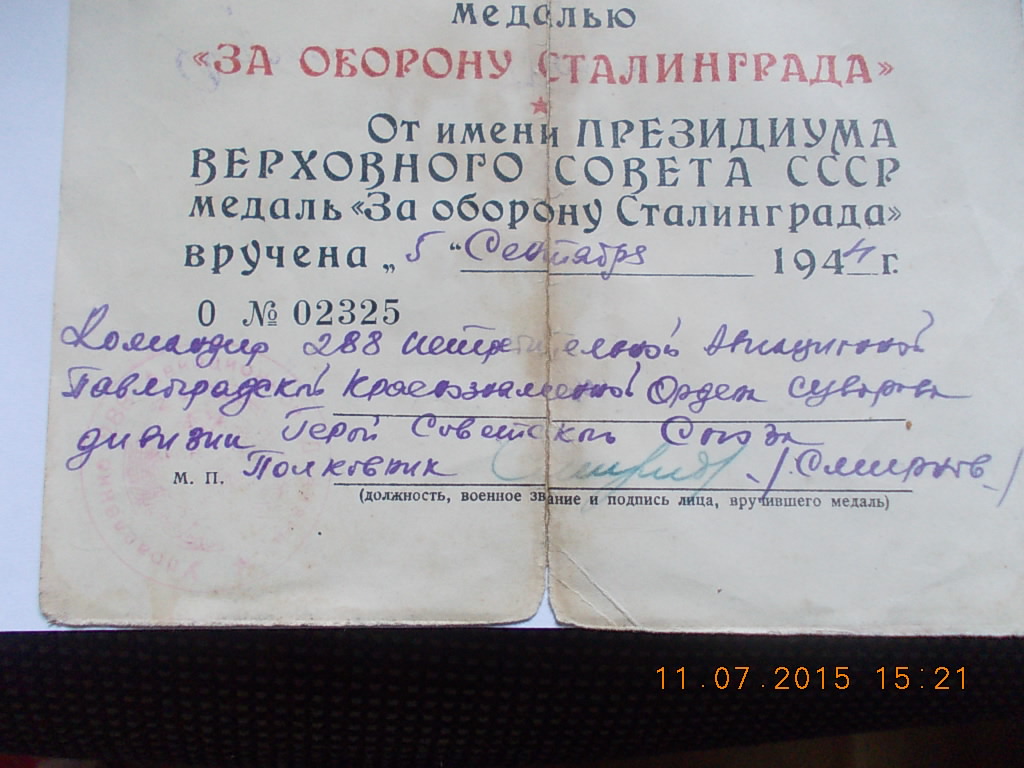 медалью
«ЗА ОБОРОНУ СТАЛИНГРАДА»
От имени ПРЕЗИДИУМА
ВЕРХОВНОГО СОВЕТА СССР
медаль «За оборону Сталинграда»
вручена „ 5 “ Сентября 1944 г.
О № 02325
Командир 288 истребительной Авиационной
Павлоградской Краснознаменной Орден Суворова
дивизии Герой Советского Союза
М. П. Полковник /Смирнов/
(должность, военное звание и подпись лица, вручившего медаль)
Управление
11.07.2015 15:21